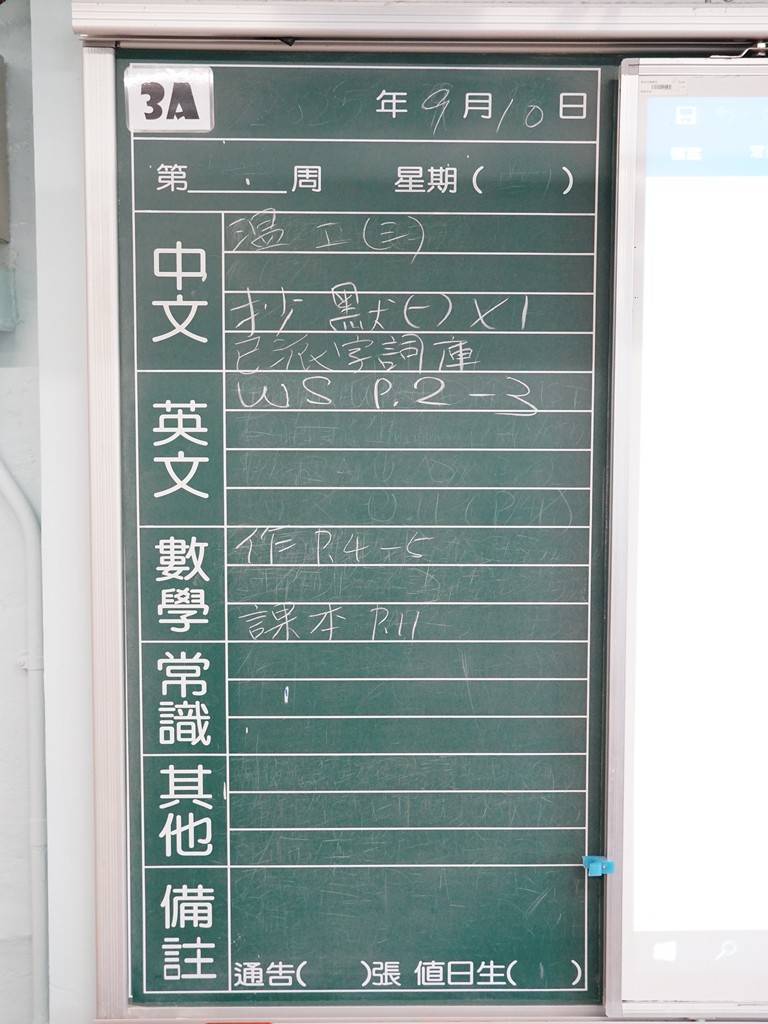 3A
年9月10日
第 周 星期( )
中文
溫工(三)
抄默(一)X1
已派字詞庫
英文
WS P.2-3
數學
作P.4-5
課本 P.11
常識
其他
備註
通告( )張 值日生( )